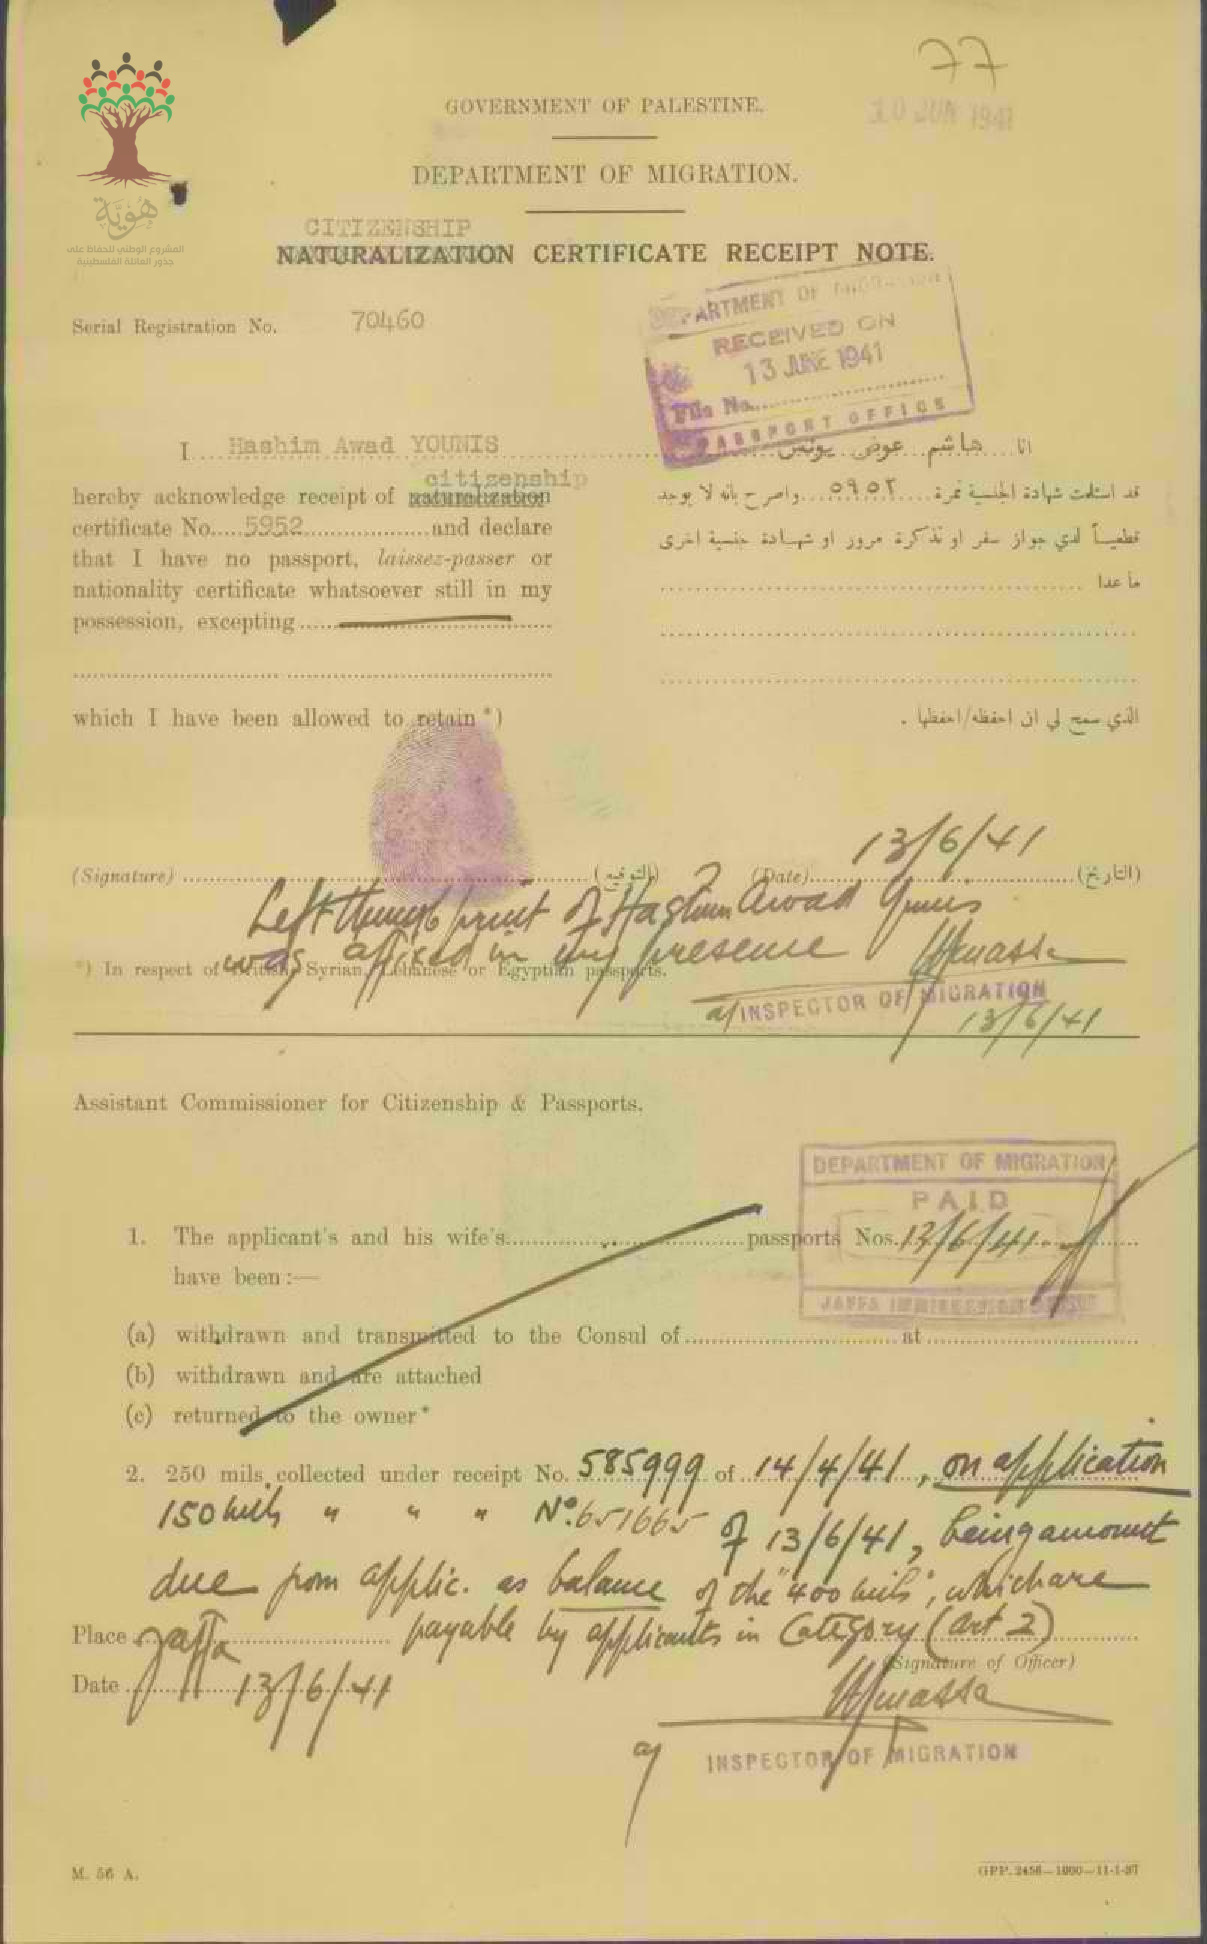 77
10 JUN 1941
هُويَّة
المشروع الوطني للحفاظ على
جذور العائلة الفلسطينية
GOVERNMENT OF PALESTINE.
DEPARTMENT OF MIGRATION.
CITIZENSHIP
NATURALIZATION CERTIFICATE RECEIPT NOTE.
Serial Registration No. 70460
DEPARTMENT OF MIGRATION
RECEIVED ON
13 JUNE 1941
File No.
PASSPORT OFFICE
I Hashim Awad YOUNIS
citizenship
hereby acknowledge receipt of naturalization
certificate No. 5952 and declare
that I have no passport, laissez-passer or
nationality certificate whatsoever still in my
possession, excepting
which I have been allowed to retain *)
انا هاشم عوض يونس
قد استلمت شهادة الجنسية نمرة ٥٩٥٢ واصرح بانه لا يوجد
قطعياً لدي جواز سفر او تذكرة مرور او شهادة جنسية اخرى
ما عدا
الذي سمح لي ان احفظه/احفظها .
(Signature) (التوقيع) (Date) 13/6/41 (التاريخ)
Left thumb print of Hashim Awad Younis
was affixed in my presence
*) In respect of British, Syrian, Lebanese or Egyptian passports.
INSPECTOR OF MIGRATION
13/6/41
Assistant Commissioner for Citizenship & Passports.
DEPARTMENT OF MIGRATION
PAID
13/6/41
JAFFA IMMIGRATION OFFICE
1. The applicant's and his wife's passports Nos.
have been :—
(a) withdrawn and transmitted to the Consul of at
(b) withdrawn and are attached
(c) returned to the owner*
2. 250 mils collected under receipt No. 585999 of 14/4/41, on application
150 mils " " " No. 651665 of 13/6/41, being amount
due from applic. as balance of the "400 mils", which are
payable by applicants in Category (Art 2)
Place Jaffa
(Signature of Officer)
Date 13/6/41
INSPECTOR OF MIGRATION
M. 56 A.
GPP. 2456—1000—11-1-37